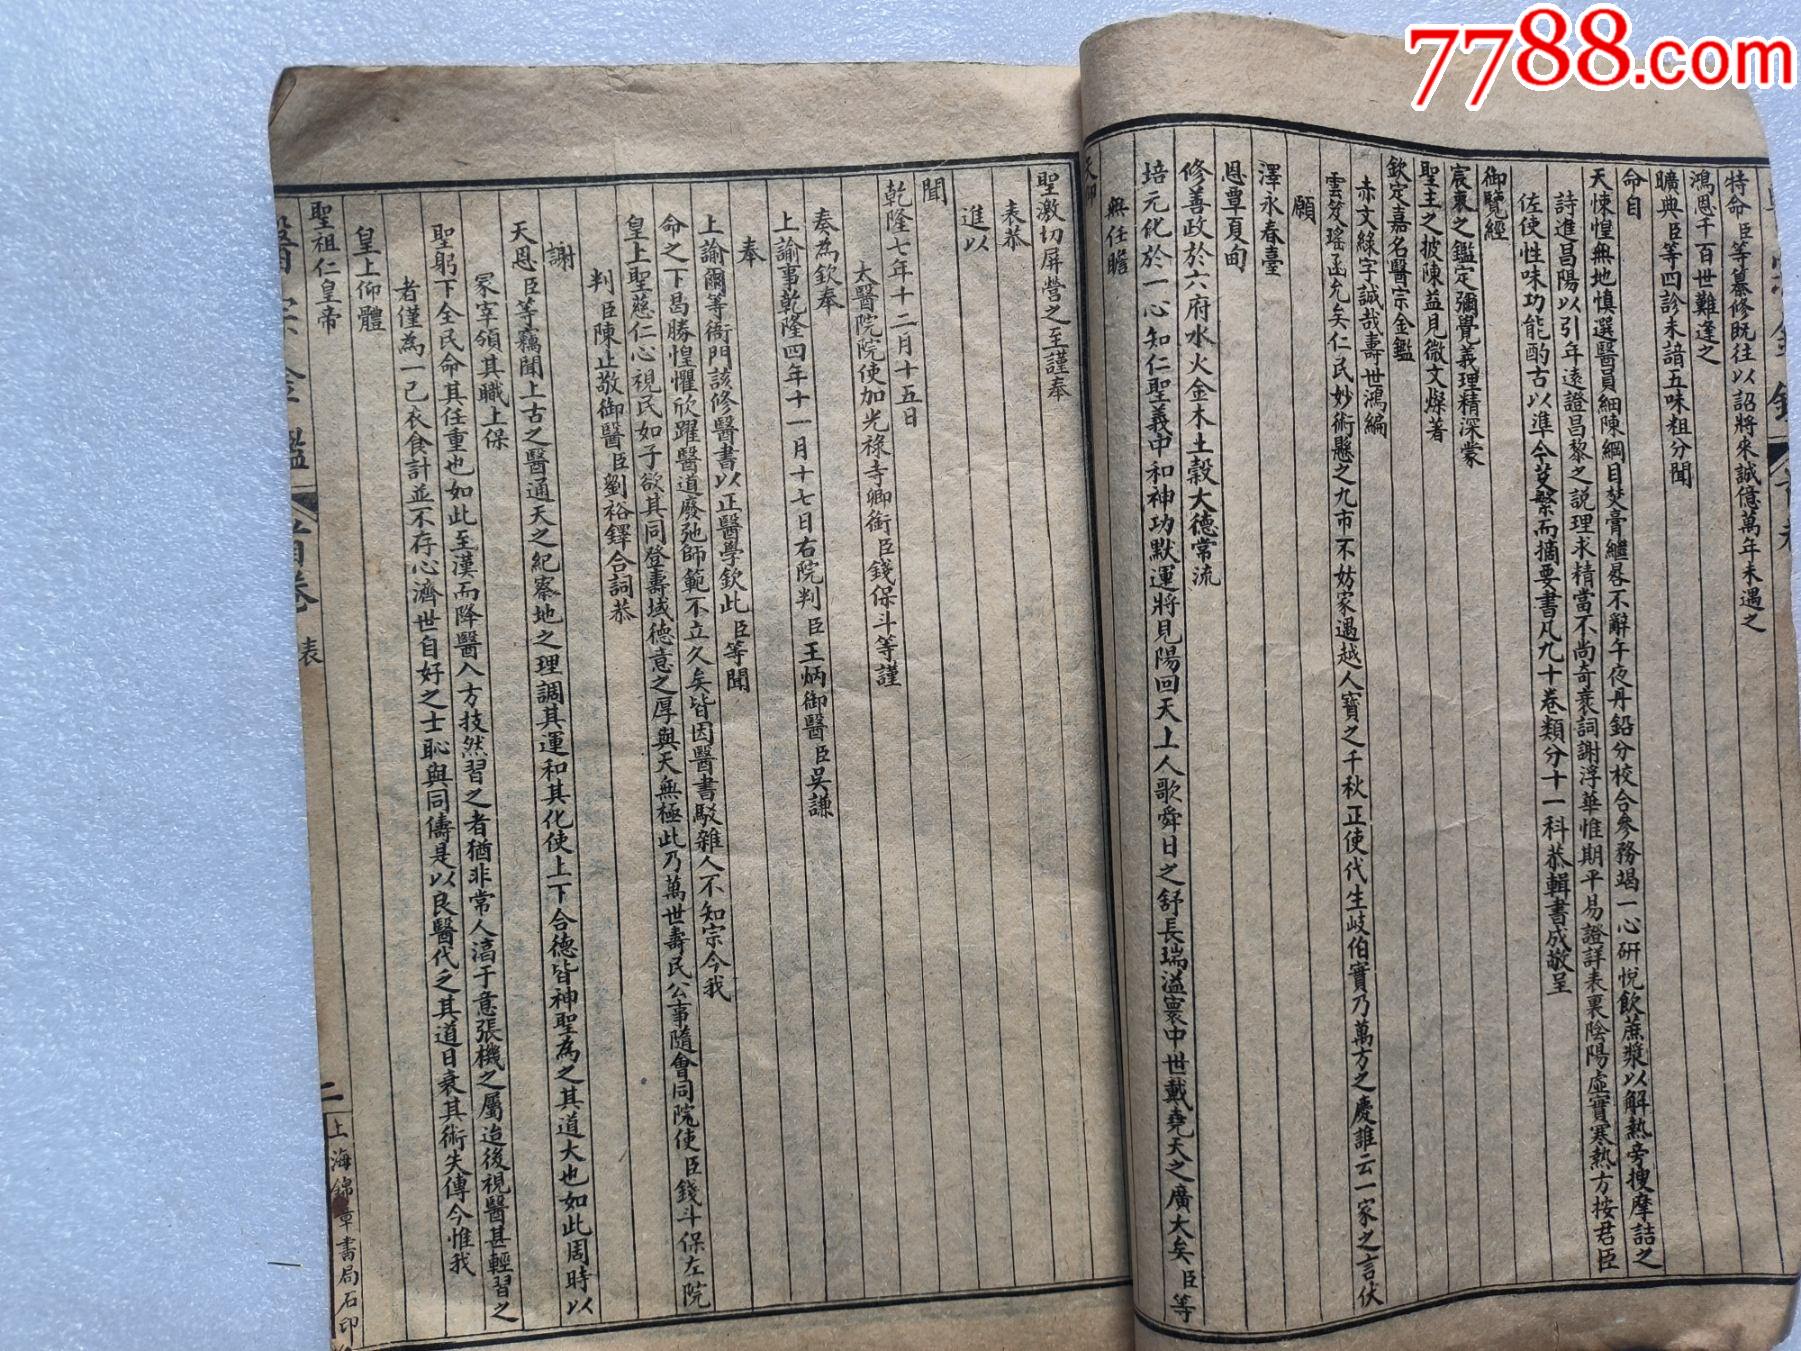 7788.com
特命臣等纂修既往以詔將來誠億萬年未遇之
鴻恩千百世難逢之
曠典臣等四診未諳五味粗分聞
命自
天悚惶無地慎選醫員細陳綱目焚膏繼晷不辭午夜丹鉛分校合參務竭一心研悅飲蔗漿以解熱旁搜摩詰之
詩進昌陽以引年遠證昌黎之説理求精當不尚奇衺詞謝浮華惟期平易證詳表裏陰陽虛實寒熱方按君臣
佐使性味功能酌古以準今芟繁而摘要書凡九十卷類分十一科恭輯書成敬呈
御覽經
宸衷之鑑定彌覺義理精深蒙
聖主之披陳益見微文燦著
欽定嘉名醫宗金鑑
赤文綠字誠哉壽世鴻編
雲笈瑤函允矣仁民妙術懸之九市不妨家遇越人寶之千秋正使代生岐伯實乃萬方之慶誰云一家之言伏
願
澤永春臺
恩覃夏甸
修善政於六府水火金木土穀大德常流
培元化於一心知仁聖義中和神功默運將見陽回天上人歌舜日之舒長瑞溢寰中世戴堯天之廣大矣臣等
無任瞻
天仰
聖激切屏營之至謹奉
表恭
進以
聞
乾隆七年十二月十五日
太醫院院使加光祿寺卿銜臣錢保斗等謹
奏為欽奉
上諭事乾隆四年十一月十七日右院判臣王炳御醫臣吳謙
奉
上諭爾等衙門該修醫書以正醫學欽此臣等聞
命之下曷勝惶懼欣躍醫道廢弛師範不立久矣皆因醫書駁雜人不知宗今我
皇上聖慈仁心視民如子欲其同登壽域德意之厚與天無極此乃萬世壽民公事隨會同院使臣錢斗保左院
判臣陳止敬御醫臣劉裕鐸合詞恭
謝
天恩臣等竊聞上古之醫通天之紀察地之理調其運和其化使上下合德皆神聖為之其道大也如此周時以
冢宰領其職上保
聖躬下全民命其任重也如此至漢而降醫入方技然習之者猶非常人湻于意張機之屬迨後視醫甚輕習之
者僅為一己衣食計並不存心濟世自好之士恥與同儔是以良醫代乏其道日衰其術失傳今惟我
皇上仰體
聖祖仁皇帝
醫宗金鑑 首卷 表
二
上海錦章書局石印